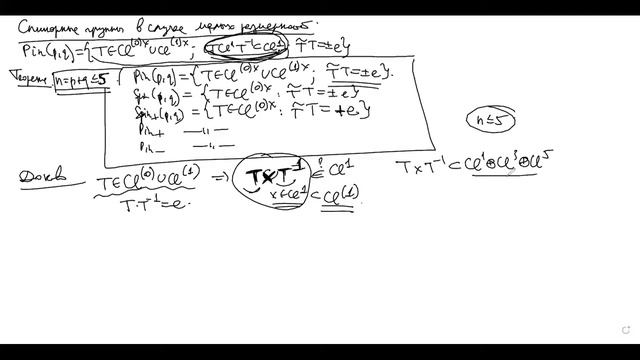 Спинорные группы в случае малых размерностей.
Pin(p,q)={T∈Cl^{(0)×}∪Cl^{(1)×}; TCl^1T^{-1}⊂Cl^1; T̃T=±e}
Теорема n=p+q≤5 Pin(p,q)={T∈Cl^{(0)×}∪Cl^{(1)×}; T̃T=±e}.
={T∈Cl^{(0)×}: T̃T=±e}
Spin_+(p,q)={T∈Cl^{(0)×}: T̃T=+e}
Pin_+ —„—
Pin_- —„—
n≤5
Доказ T∈Cl^{(0)}∪Cl^{(1)} ⇒ TxT^{-1} ∈? Cl^1
x∈Cl^1 ⊂ Cl^{(1)}
T·T^{-1}=e.
TxT^{-1}⊂Cl^1⊕Cl^3⊕Cl^5